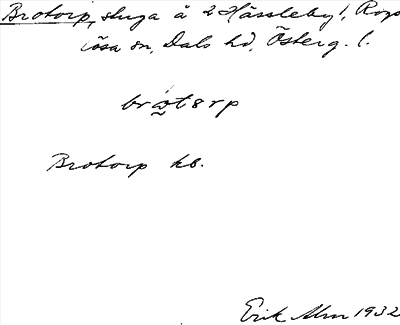 Brotorp, stuga å 2 Hässleby /, Rogs
lösa sn, Dals hd, Österg. l.
Brotorp kb.
Erik Alm 1932